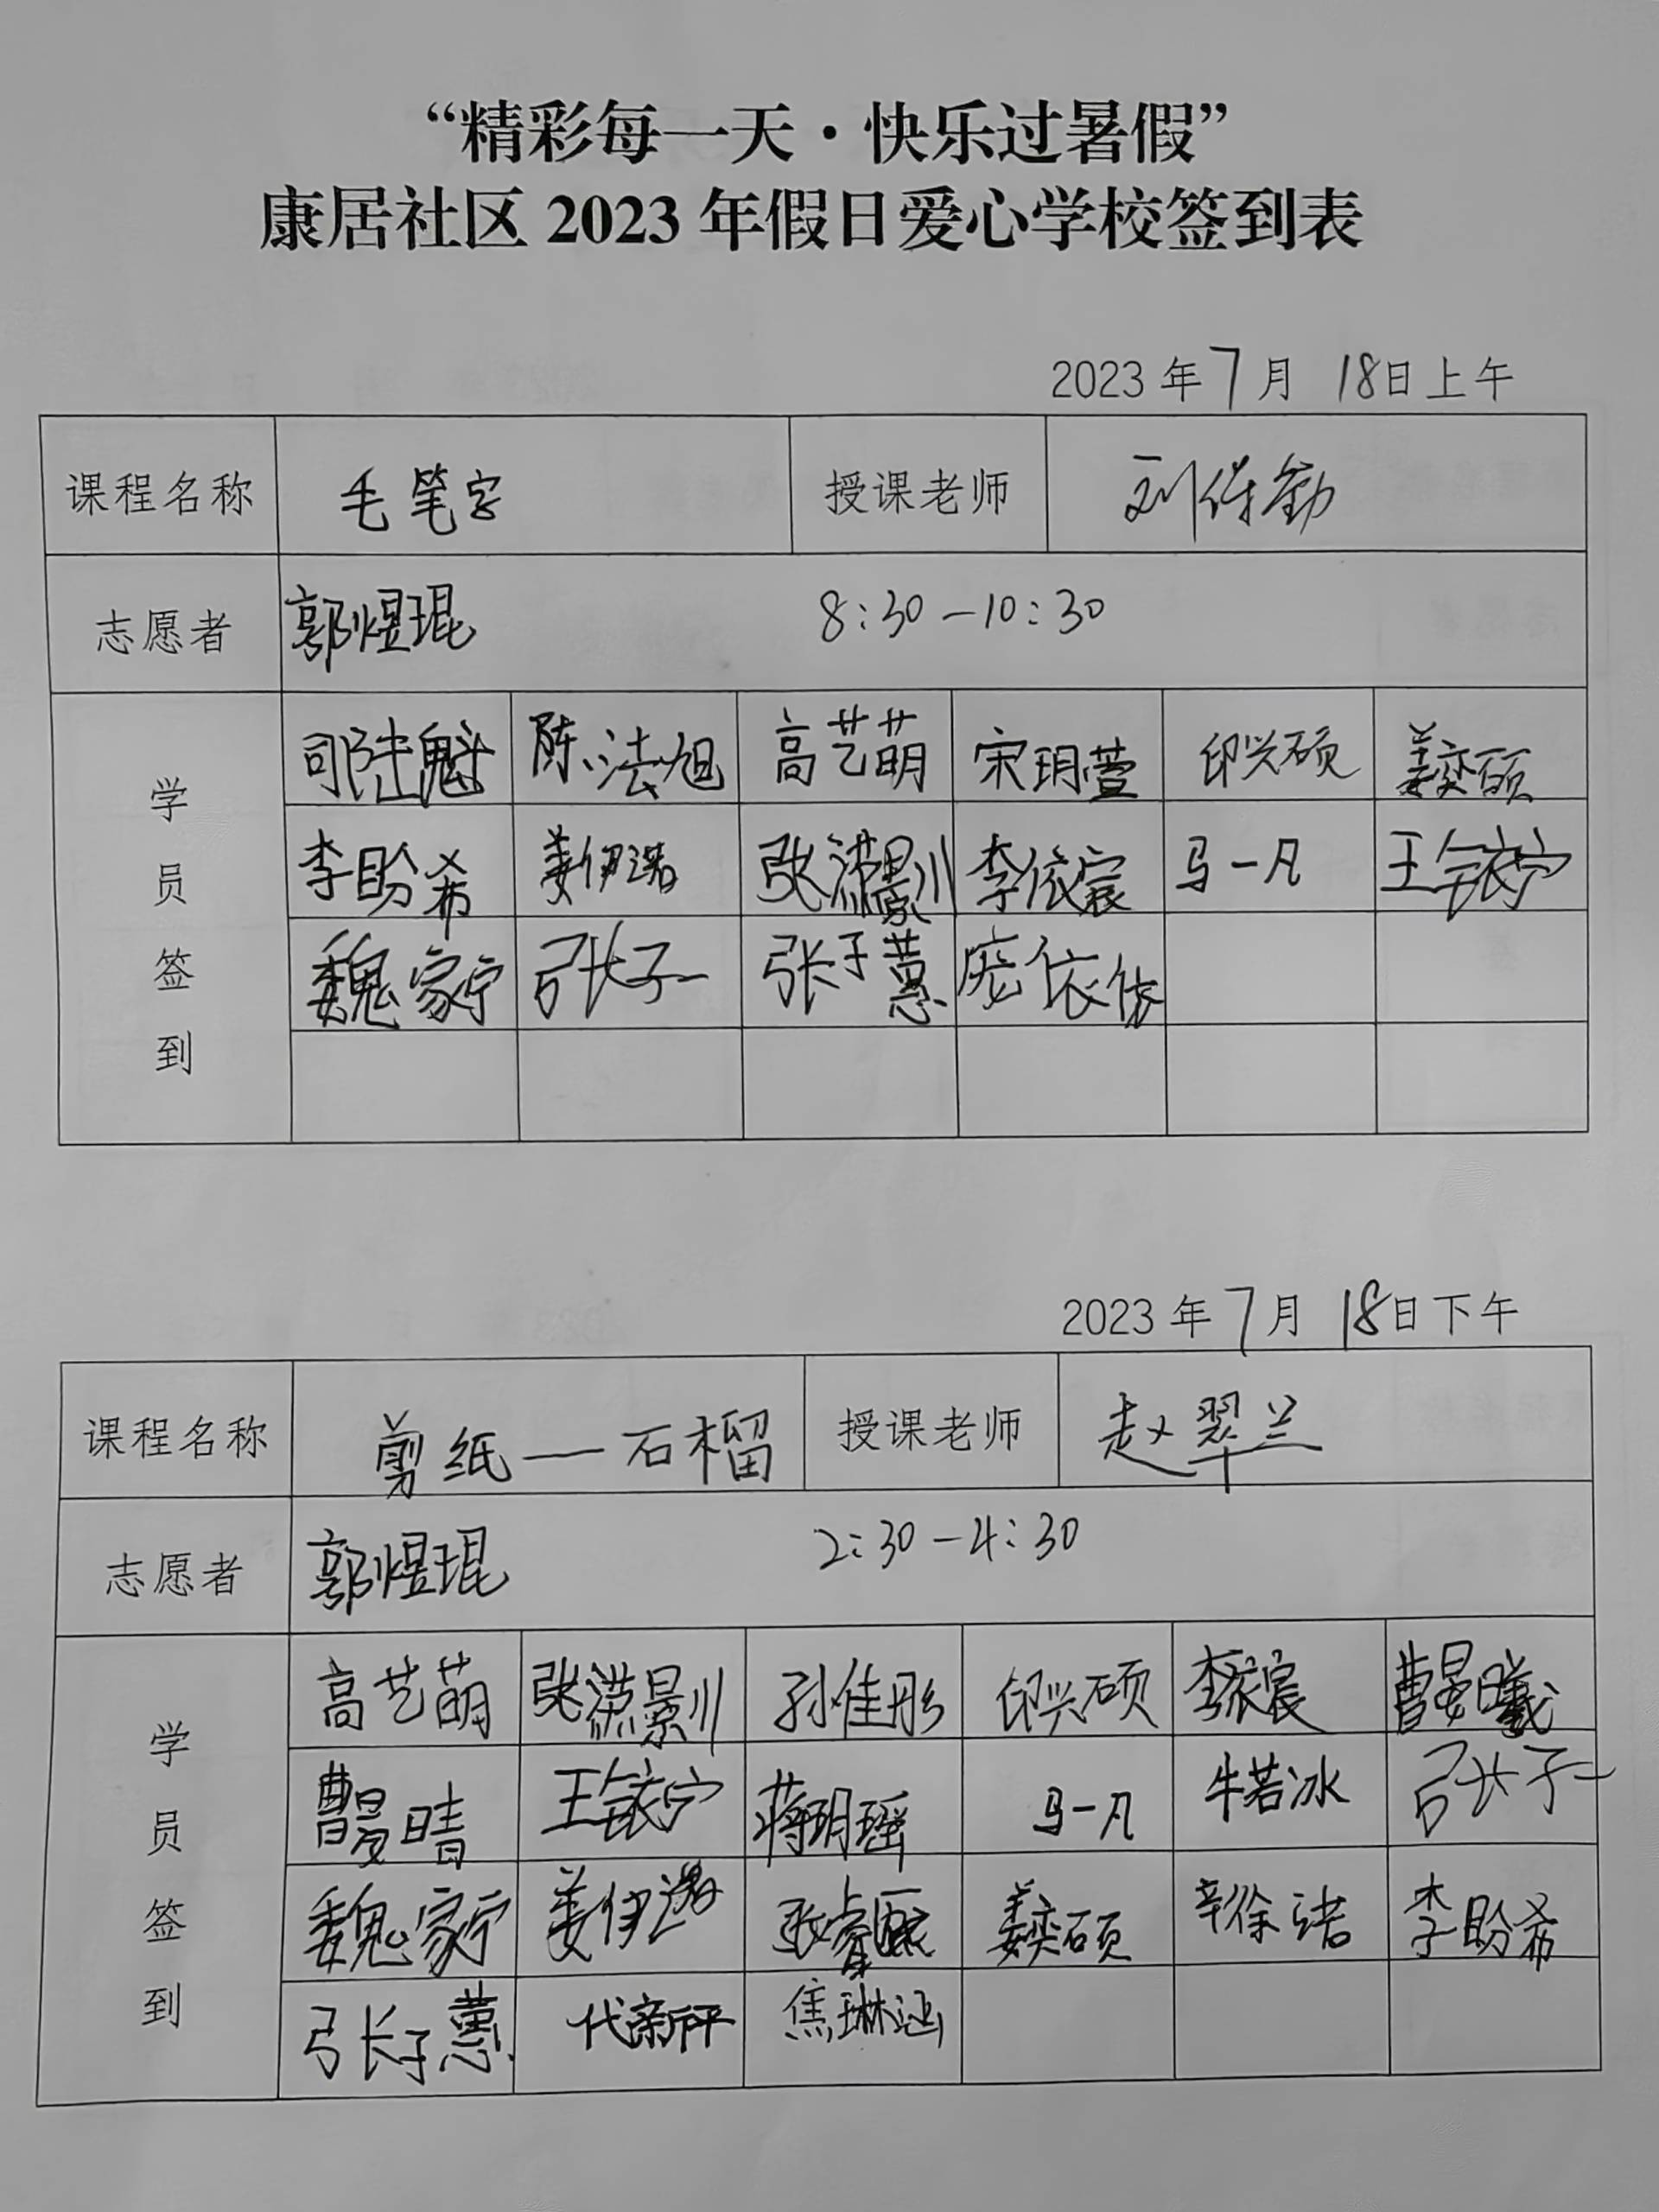 “精彩每一天·快乐过暑假”
康居社区 2023 年假日爱心学校签到表
2023 年 7 月 18 日上午
课程名称 毛笔字 授课老师 刘保勤
志愿者 郭煜琨 8:30—10:30
学员签到
司陆魁 陈法旭 高艺萌 宋玥萱 印兴硕 姜奕硕
李盼希 姜伊诺 张景川 李依宸 马一凡 王依宁
魏家宁 张子一 张子蕙 庞依依
2023 年 7 月 18 日下午
课程名称 剪纸——石榴 授课老师 赵翠兰
志愿者 郭煜琨 2:30—4:30
学员签到
高艺萌 张景川 孙佳彤 印兴硕 李依宸 曹晏曦
曹晏晴 王依宁 蒋玥瑶 马一凡 牛若冰 张子一
魏家宁 姜伊诺 张睿熙 姜奕硕 辛徐诺 李盼希
张子蕙 代新评 焦琳涵